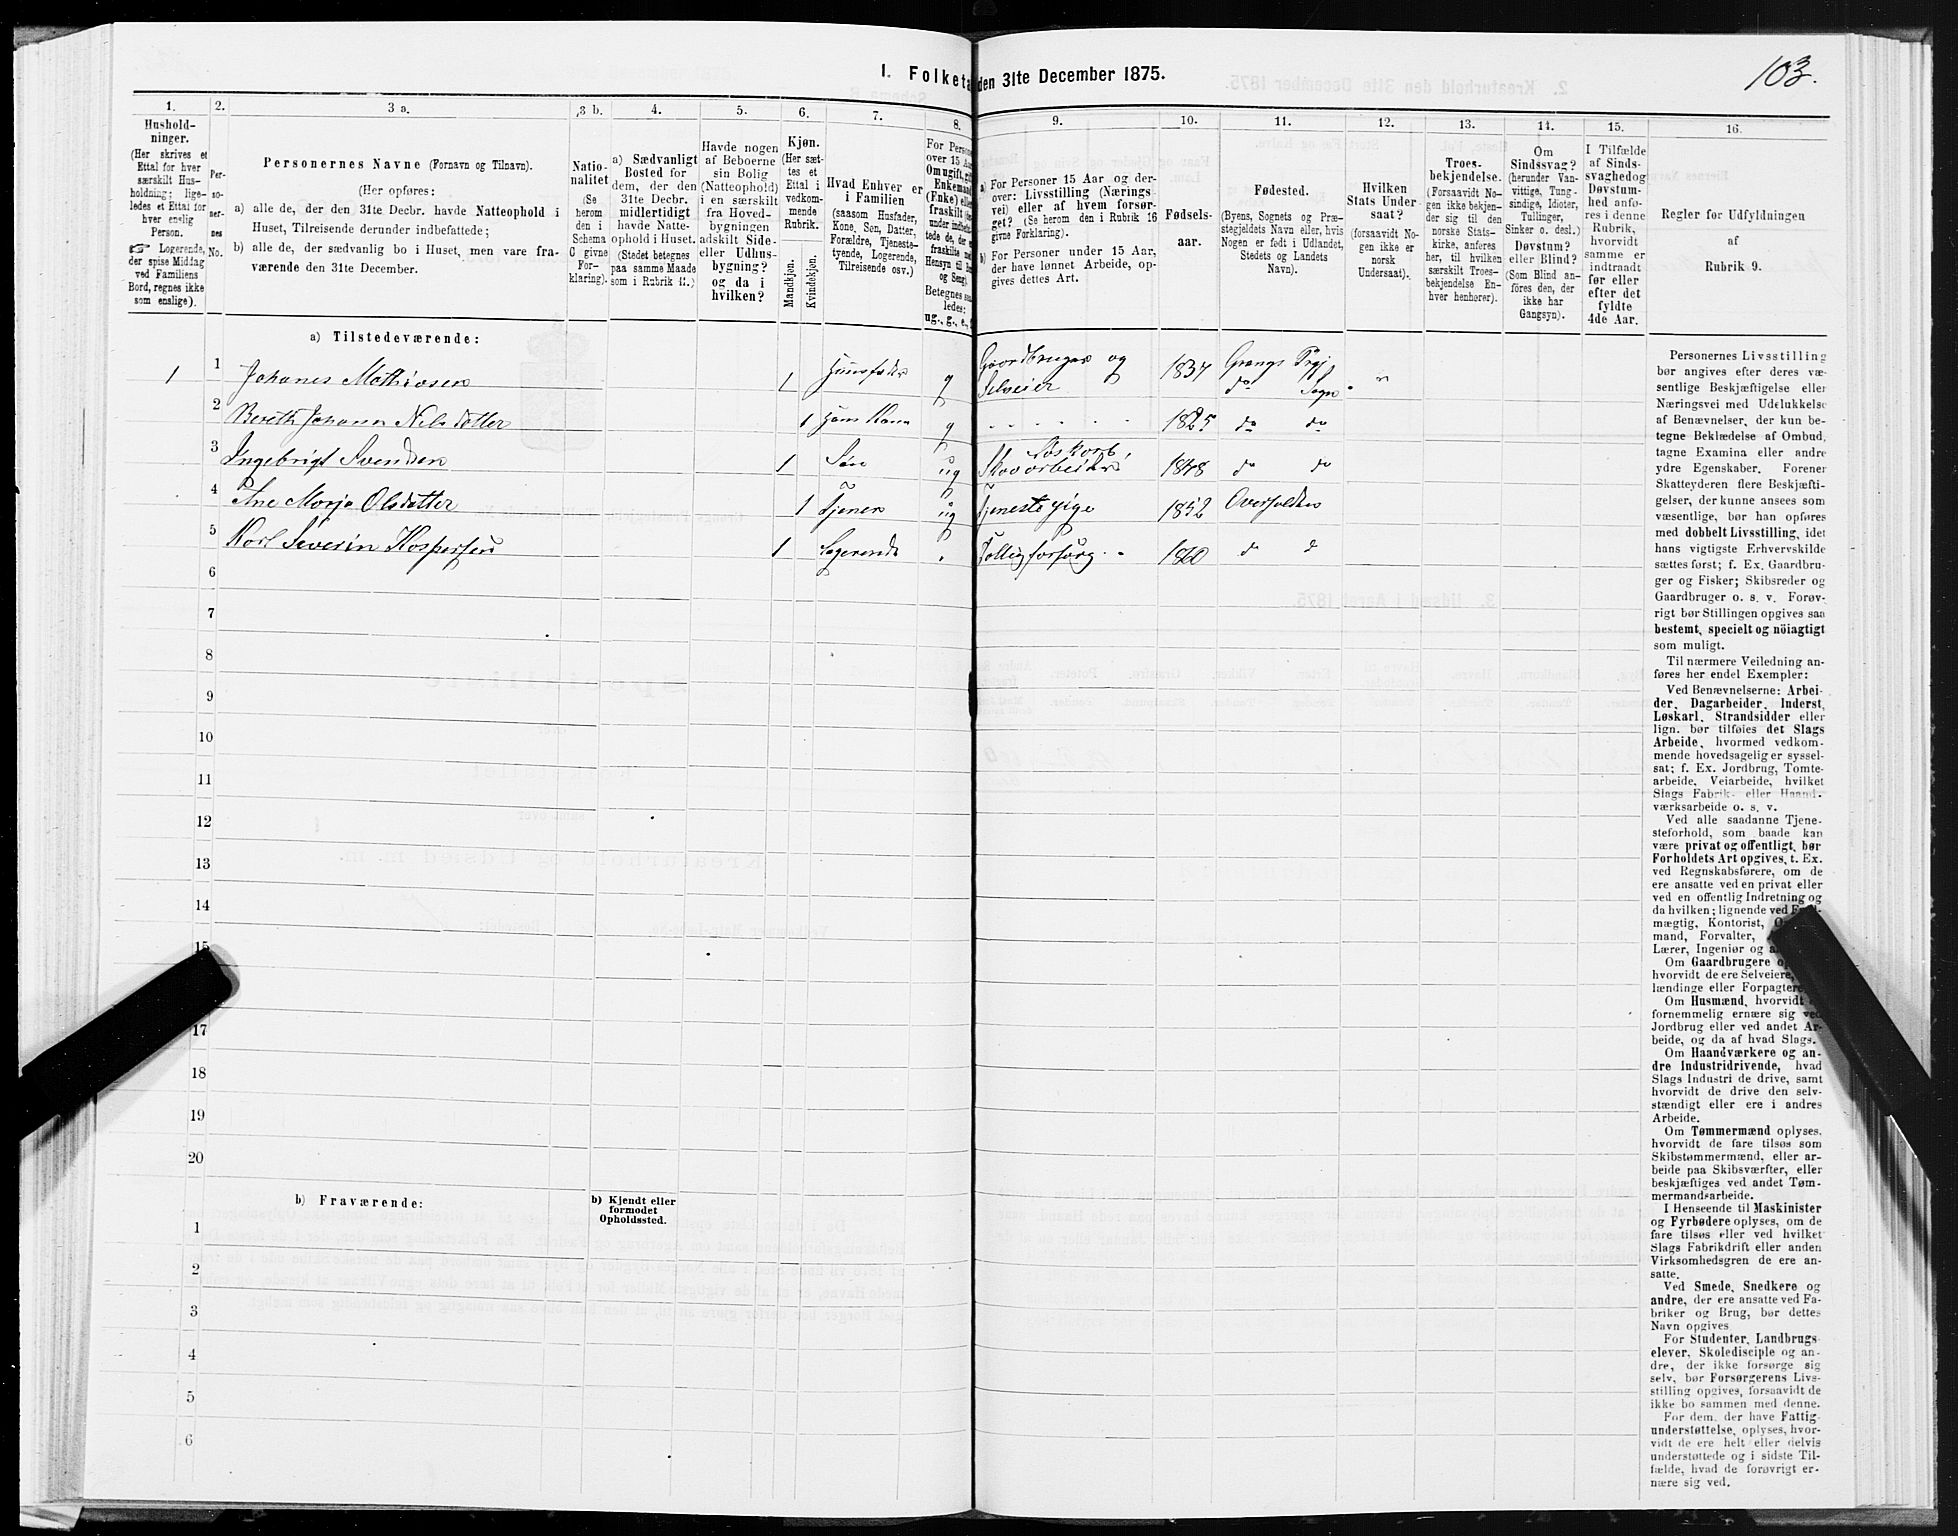 103.
1. Folketæ
den 31te December 1875.
1. 2. 3 a. 3 b. 4. 5. 6. 7. 8. 9. 10. 11. 12. 13. 14. 15. 16.
Hushold-
ninger.
(Her skrives et
Ettal for hver
særskilt Hus-
holdning; lige-
ledes et Ettal for
hver enslig
Person.
☞ Logerende,
der spise Middag
ved Familiens
Bord, regnes ikke
som enslige).
Per-
so-
ner-
nes
No.
Personernes Navne (Fornavn og Tilnavn).
(Her opføres:
a) alle de, der den 31te Decbr. havde Natteophold i
Huset, Tilreisende derunder indbefattede;
b) alle de, der sædvanlig bo i Huset, men vare fra-
værende den 31te December.
Natio-
nalitet
(Se
herom
den i
Schema
C givne
For-
klaring).
a) Sædvanligt
Bosted for
dem, der den
31te Decbr.
midlertidigt
havde Natte-
ophold i Huset.
(Stedet betegnes
paa samme Maade
som i Rubrik 11.)
Havde nogen
af Beboerne
sin Bolig
(Natteophold)
i en særskilt
fra Hoved-
bygningen
adskilt Side-
eller Udhus-
bygning?
og da i
hvilken?
Kjøn.
(Her sæt-
tes et
Ettal i
vedkom-
mende
Rubrik.
Mandkjøn.
Kvindekjøn.
Hvad Enhver er
i Familien
(saasom Husfader,
Kone, Søn, Datter,
Forældre, Tjeneste-
tyende, Logerende,
Tilreisende osv.)
For Persone
over 15 Aar
Om ugift, gift
Enkemand
(Enke) eller
fraskilt
Betegnes saa-
ledes:
ug., g., e.,
a) For Personer 15 Aar og der-
over: Livsstilling (Nærings-
vei) eller af hvem forsør-
get? (Se herom den i Rubrik 16
givne Forklaring).
b) For Personer under 15 Aar,
der have lønnet Arbeide, op-
gives dettes Art.
Fødsels-
aar.
Fødested.
(Byens, Sognets og Præ-
stegjeldets Navn eller, hvis
Nogen er født i Udlandet,
Stedets og Landets
Navn).
Hvilken
Stats Under-
saat?
(forsaavidt No-
gen ikke er
norsk
Undersaat).
Troes-
bekjendelse.
(Forsaavidt No-
gen ikke bekjen-
der sig til den
norske Stats-
kirke, anføres
her, til hvilken
særskilt Troes-
bekjendelse En-
hver henhører).
Om
Sindssvag?
(herunder Van-
vittige, Tung-
sindige, Idioter,
Tullinger,
Sinker o. desl.)
Døvstum?
eller Blind?
(Som Blind an-
føres den, der
ikke har
Gangsyn).
I Tilfælde
af Sinds-
svaghed og
Døvstum-
hed anfø-
res i denne
Rubrik,
hvorvidt
samme er
indtraadt
før eller
efter det
fyldte
4de Aar.
Regler for Udfyldningen
af
Rubrik 9.
a) Tilstedeværende:
1 1 Johanes Mathiasen 1 Huusfader g Gaardbruger og Selveier 1837 Grongs Prgj do Sogn
2 Bereth Johana Nilsdatter 1 Hans Kone g 1825 do do
3 Ingebrigt Svendsen 1 Søn ug Skovarbeider 1848 do do
4 Ane Marja Olsdatter 1 Tjener ug Tjenestepige 1852 Overhalden
5 Karl Severin Kaspersen 1 Logerende Fattigforsørg. 1860 d d
6
7
8
9
10
11
12
13
14
15
17
18
19
20
b) Fraværende:
b) Kjendt eller
formodet
Opholdssted.
1
2
3
4
5
6
Personernes Livsstilling
bør angives efter deres væ-
sentlige Beskjæftigelse eller
Næringsvei med Udelukkelse
af Benævnelser, der kun be-
tegne Beklædelse af Ombud,
tagne Examina eller andre
ydre Egenskaber. Forener
Skatteyderen flere Beskjæfti-
gelser, der kunne ansees som
væsentlige, bør han opføres
med dobbelt Livsstilling, idet
hans vigtigste Erhvervskilde
sættes først; f. Ex. Gaardbru-
ger og Fisker; Skibsreder og
Gaardbruger o. s. v. Forøv-
rigt bør Stillingen opgives saa
bestemt, specielt og nöiagtigt
som muligt.
Til nærmere Veiledning an-
føres her endel Exempler:
Ved Benævnelserne: Arbei-
der, Dagarbeider, Inderst,
Løskarl, Strandsidder eller
lign. bør tilføies det Slags
Arbeide, hvormed vedkom-
mende hovedsagelig er syssel-
sat; f. Ex. Jordbrug, Tomte-
arbeide, Veiarbeide, hvilket
Slags Fabrik- eller Haand-
værksarbeide o. s. v.
Ved alle saadanne Tjene-
steforhold, som baade kan
være privat og offentligt, bør
Forholdets Art opgives, t. Ex.
ved Regnskabsførere, om de
ere ansatte ved en privat eller
ved en offentlig Indretning og
da hvilken; lignende ved
mægtig, Kontorist,
mand, Forvalter,
Lærer, Ingeniør og
Om Gaardbrugere
hvorvidt de ere Selveiere,
lændinge eller Forpagtere
Om Husmænd, hvorvidt
fornemmelig ernære sig ved
Jordbrug eller ved andet Ar-
beide, og da af hvad Slags.
Om Haandværkere og an-
dre Industridrivende, hvad
Slags Industri de drive, samt
hvorvidt de drive den selv-
stændigt eller ere i andres
Arbeide.
Om Tømmermænd oplyses,
hvorvidt de fare tilsøs som
Skibstømmermænd, eller ar-
beide paa Skibsværfter, eller
beskjæftiges ved andet Tøm-
mermandsarbeide.
I Henseende til Maskinister
og Fyrbødere oplyses, om de
fare tilsøs eller ved hvilket
Slags Fabrikdrift eller anden
Virksomhedsgren de ere an-
satte.
Ved Smede, Snedkere og
andre, der ere ansatte ved Fa-
briker og Brug, bør dettes
Navn opgives.
For Studenter, Landbrugs-
elever, Skoledisciple og an-
dre, der ikke forsørge sig
selv, bør Forsørgerens Livs-
stilling opgives, forsaavidt de
ikke bo sammen med denne.
For dem, der have Fattig-
understøttelse, oplyses, hvor-
vidt de ere helt eller delvis
understøttede og i sidste Til-
fælde, hvad de forøvrigt er-
nære sig ved.